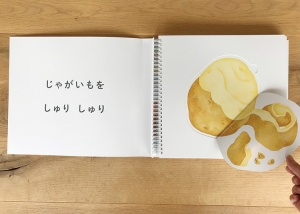 じゃがいもを
しゅり しゅり